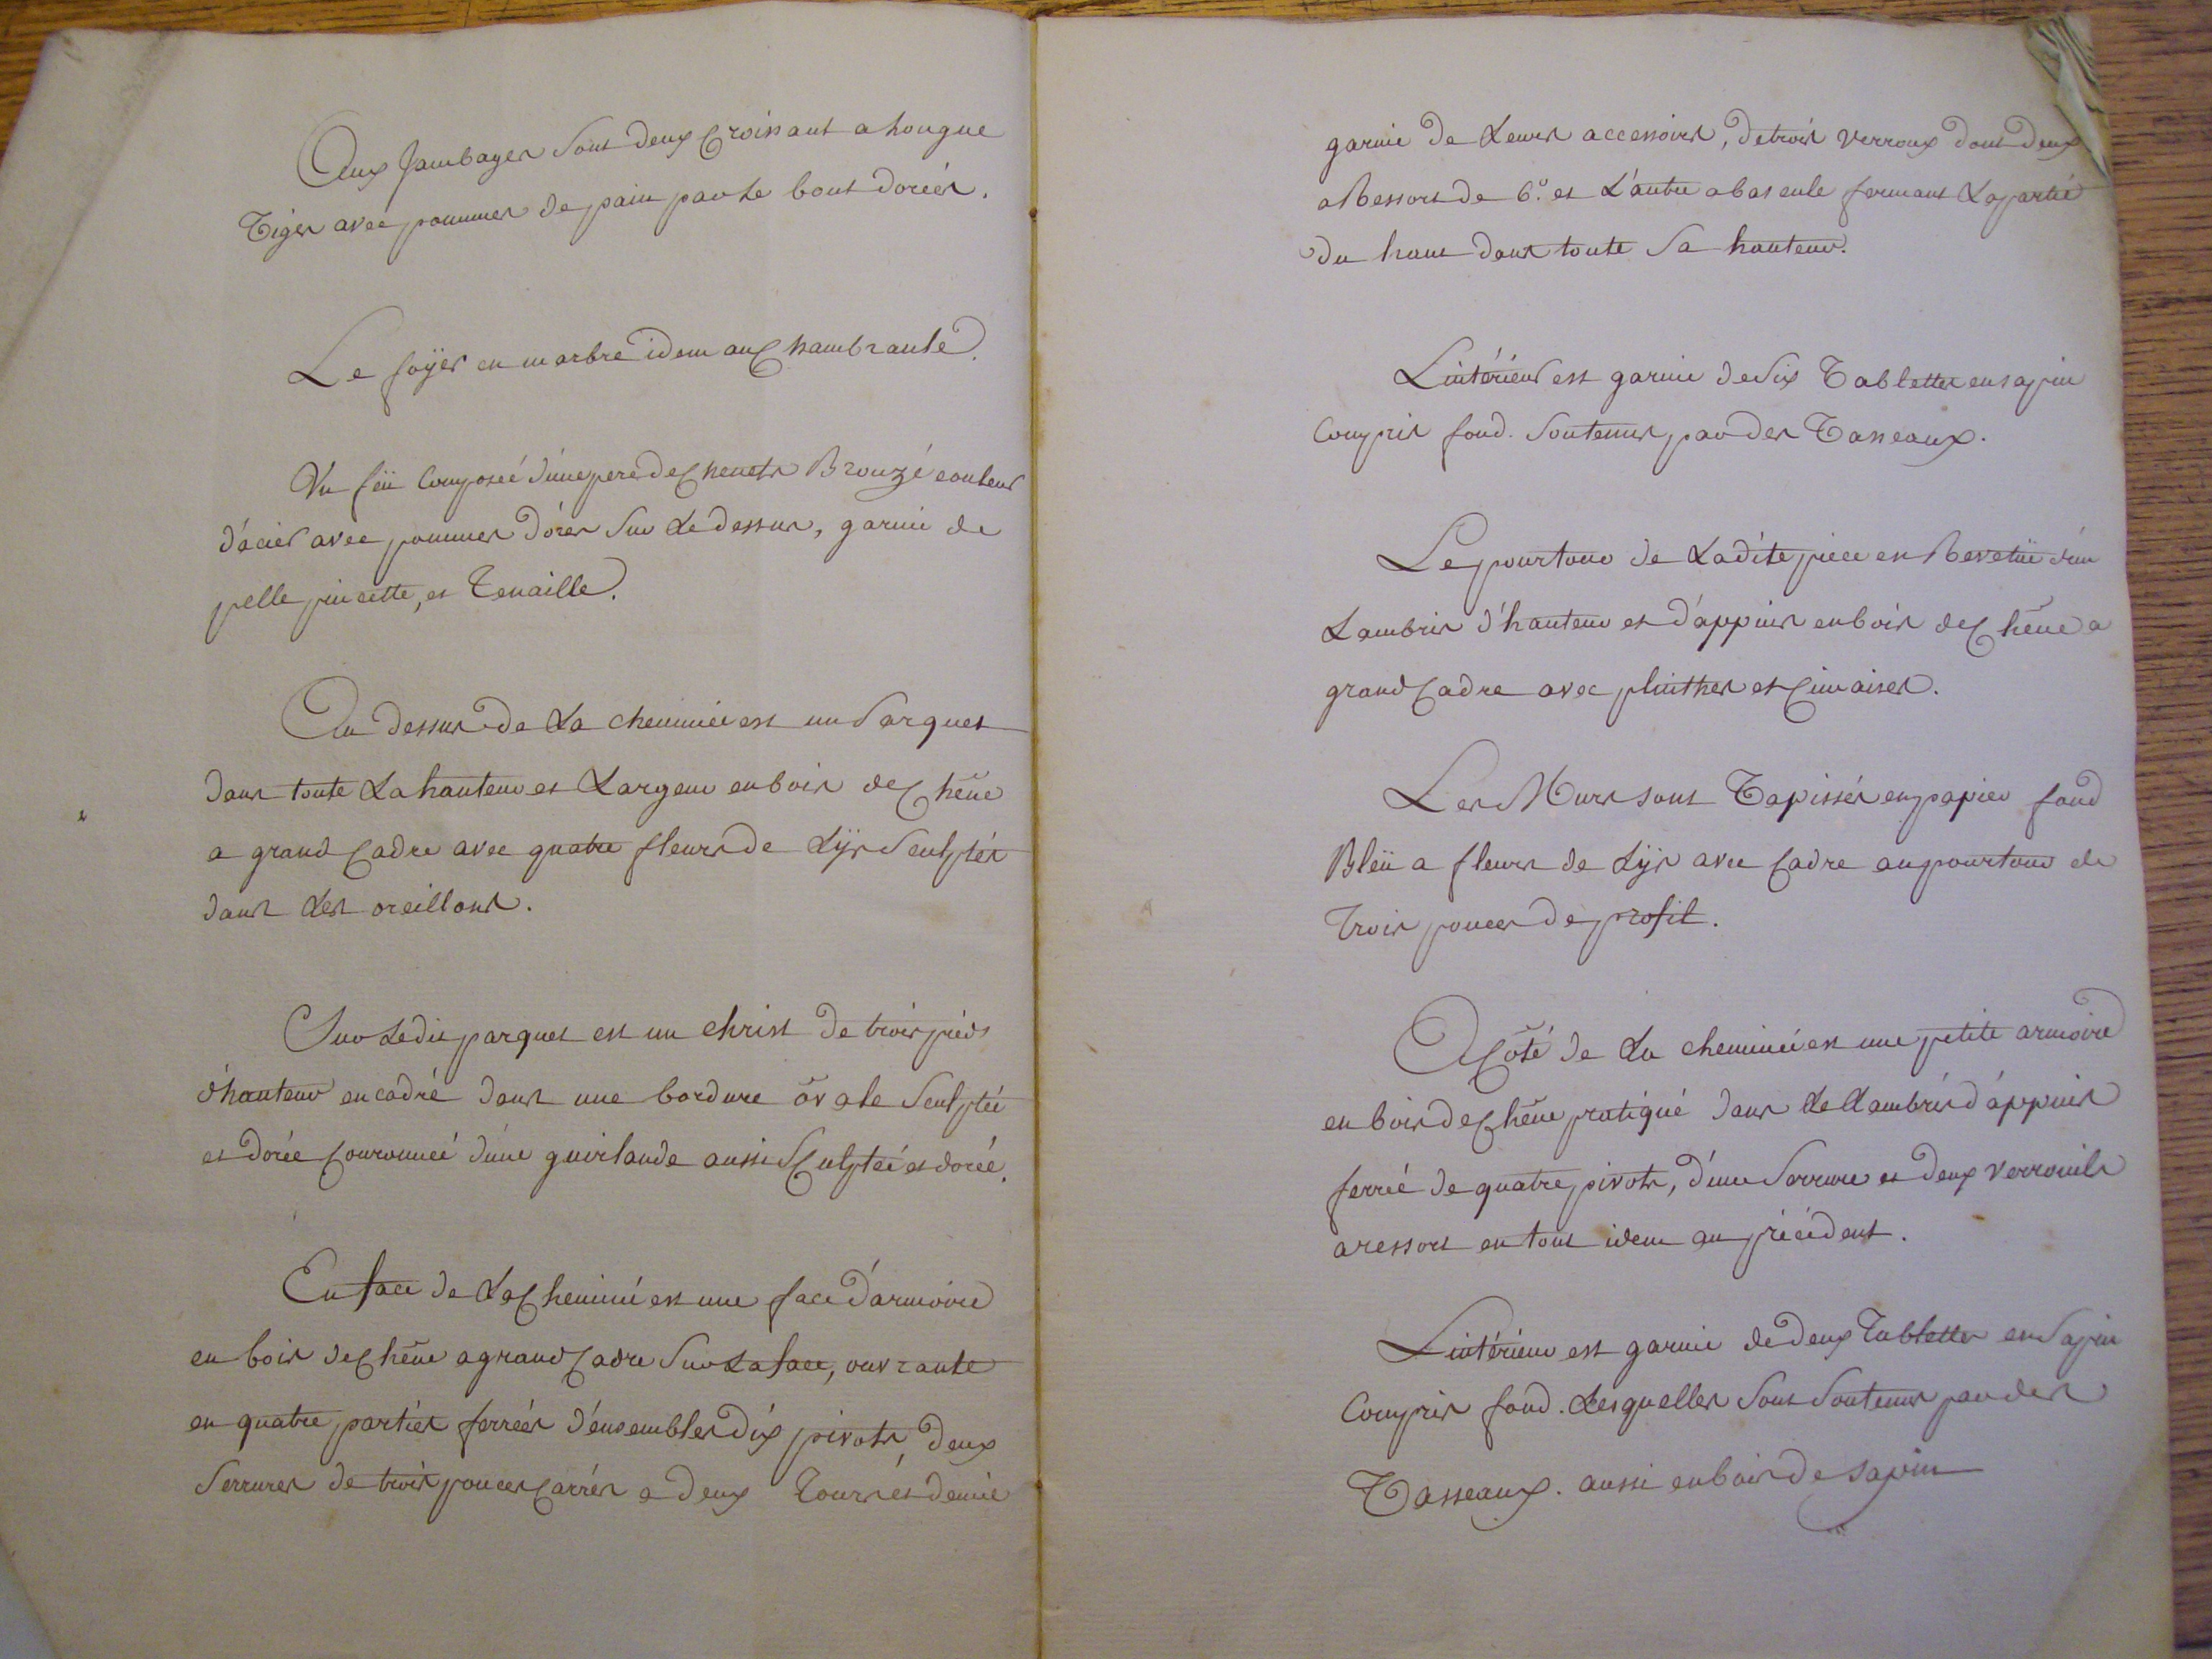 Aux Jambages sont deux Croissant a longue
Tiges avec pommes de pain par le bout dorées.
Le foÿer en marbre idem au Chambranle.
Un feü Composée d'une pere de Chenets Bronzé couleur
d'acier avec pommes dóres sur Le dessus, garnie de
pelle pincette, et Tenaille.
Au dessus de La cheminée est un Parquet
dans toute La hauteur et Largeur en bois de Chêne
a grand Cadre avec quatre fleurs de Lÿs Sculptés
dans Les oreillons.
Sur Ledit parquet est un christ de trois pieds
d'hauteur encadré dans une bordure ovale Sculptée
et dorée Couronnée d'une guirlande aussi SCulptée et dorée.
En face de La Cheminé est une face d'armoire
en bois de Chêne a grand Cadre Sur La face, ouvrante
en quatre parties ferrées d'ensembles dix pivots, deux
Serrures de trois pouces Carrés a deux Tours et demie
garnie de Leurs accessoires, de trois Verroux dont deux
a Ressort de 6.º et L'autre a bascule fermant La partie
du haut dans toute Sa hauteur.
L'intérieur est garnie de Six Tablettes en sapin
Compris fond. Soutenus par des Tasseaux.
Le pourtour de Ladite piece en Revetüe d'un
Lambris d'hauteur et d'appuis en bois de Chêne a
grand Cadre avec plinthes et Cimaises.
Les Murs sont Tapissés en papier fond
Bleü a fleurs de Lÿs avec Cadre au pourtour de
Trois pouces de profil.
A Coté de La cheminée est une petite armoire
en bois de Chêne pratiqué dans Le Lambris d'appuis
ferrée de quatre pivots, d'une Serrure et deux verrouils
a ressort en tout idem au précédent.
L'intérieur est garnie de deux Tablettes en Sapin
Compris fond. Lesquelles sont Soutenus par des
Tasseaux. aussi en bois de sapin